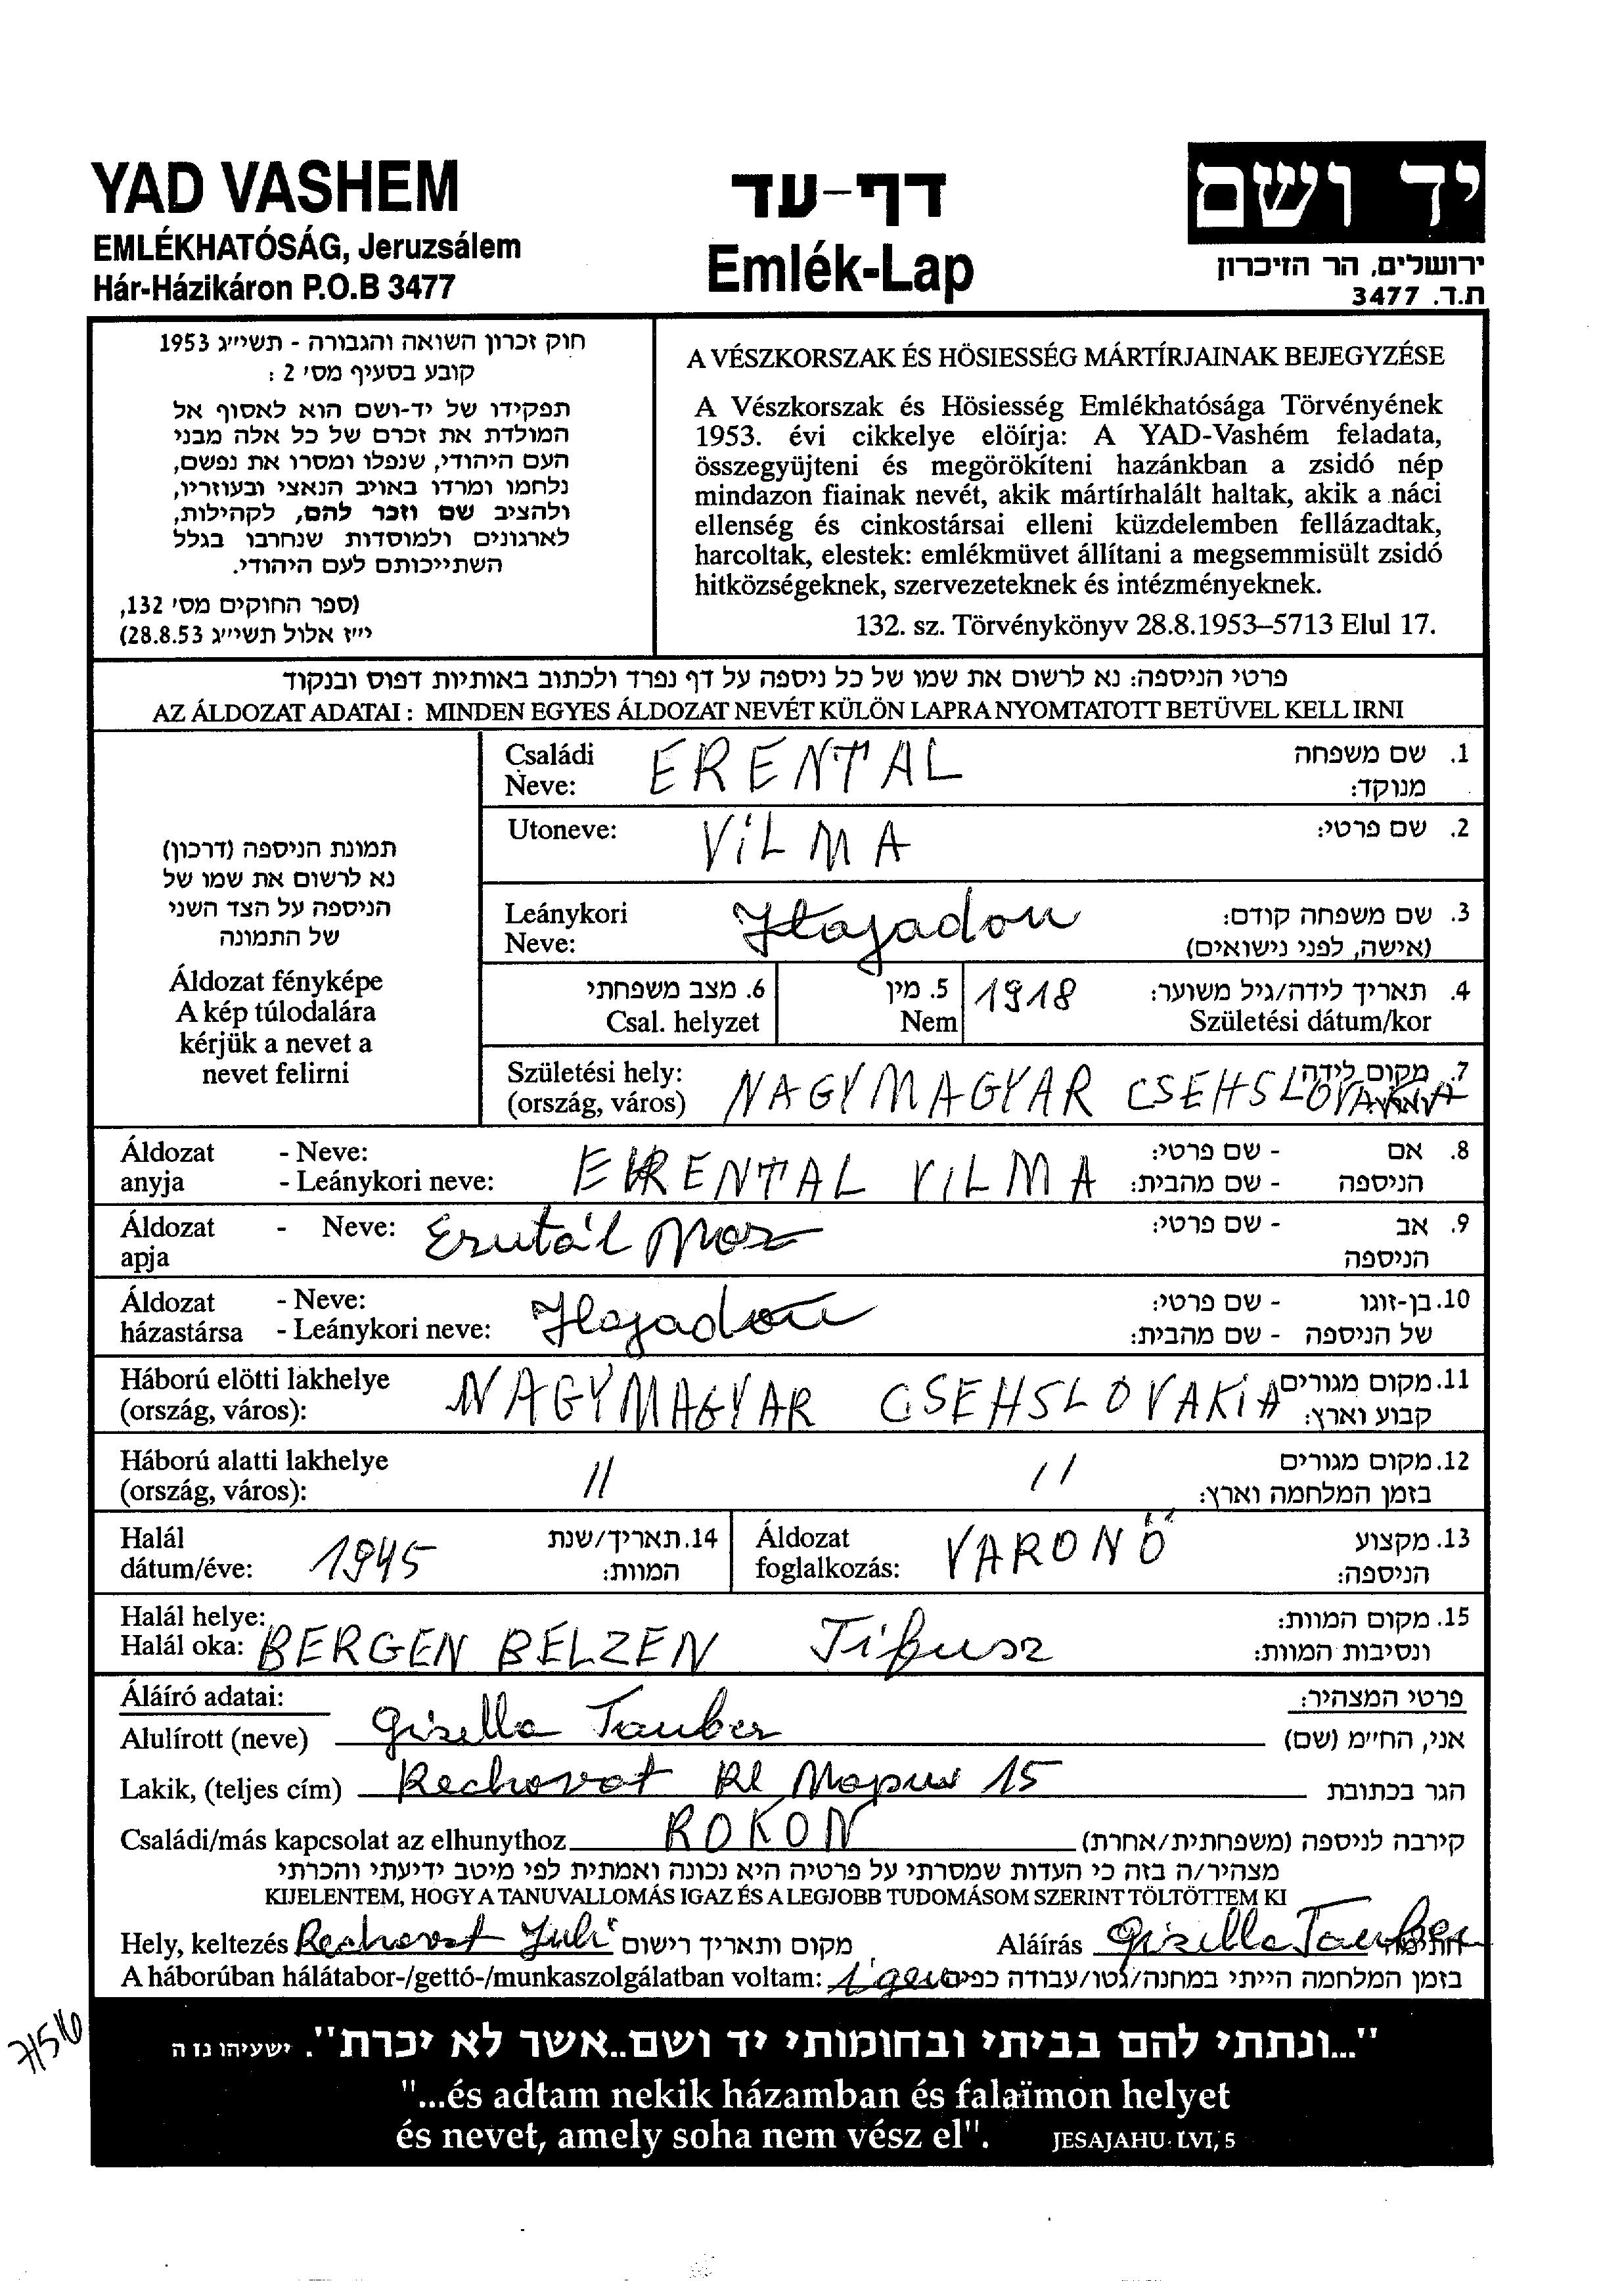 YAD VASHEM
EMLÉKHATÓSÁG, Jeruzsálem
Hár-Házikáron P.O.B 3477
דף-עד
Emlék-Lap
יד ושם
ירושלים, הר הזיכרון
ת.ד. 3477
חוק זכרון השואה והגבורה - תשי״ג 1953
קובע בסעיף מס׳ 2 :
תפקידו של יד-ושם הוא לאסוף אל
המולדת את זכרם של כל אלה מבני
העם היהודי, שנפלו ומסרו את נפשם,
נלחמו ומרדו באויב הנאצי ובעוזריו,
ולהציב שם וזכר להם, לקהילות,
לארגונים ולמוסדות שנחרבו בגלל
השתייכותם לעם היהודי.
(ספר החוקים מס׳ 132,
י״ז אלול תשי״ג 28.8.53)
A VÉSZKORSZAK ÉS HÖSIESSÉG MÁRTÍRJAINAK BEJEGYZÉSE
A Vészkorszak és Hösiesség Emlékhatósága Törvényének
1953. évi cikkelye elöírja: A YAD-Vashém feladata,
összegyüjteni és megörökíteni hazánkban a zsidó nép
mindazon fiainak nevét, akik mártírhalált haltak, akik a náci
ellenség és cinkostársai elleni küzdelemben fellázadtak,
harcoltak, elestek: emlékmüvet állítani a megsemmisült zsidó
hitközségeknek, szervezeteknek és intézményeknek.
132. sz. Törvénykönyv 28.8.1953–5713 Elul 17.
פרטי הניספה: נא לרשום את שמו של כל ניספה על דף נפרד ולכתוב באותיות דפוס ובנקוד
AZ ÁLDOZAT ADATAI : MINDEN EGYES ÁLDOZAT NEVÉT KÜLÖN LAPRA NYOMTATOTT BETÜVEL KELL IRNI
תמונת הניספה (דרכון)
נא לרשום את שמו של
הניספה על הצד השני
של התמונה
Áldozat fényképe
A kép túlodalára
kérjük a nevet a
nevet felirni
Családi
Neve: ERENTAL
1. שם משפחה
מנוקד:
Utoneve: ViLMA 2. שם פרטי:
Leánykori
Neve: Hajadon
3. שם משפחה קודם:
(אישה, לפני נישואים)
6. מצב משפחתי
Csal. helyzet
5. מין
Nem
1918
4. תאריך לידה/גיל משוער:
Születési dátum/kor
Születési hely:
(ország, város) NAGYMAGYAR CSEHSLOVAKIA
7. מקום לידה
Áldozat - Neve:
anyja - Leánykori neve: ERENTAL VILMA
8. אם - שם פרטי:
הניספה - שם מהבית:
Áldozat - Neve:
apja
9. אב - שם פרטי:
הניספה
Áldozat - Neve:
házastársa - Leánykori neve: Hajadon
10. בן-זוגו - שם פרטי:
של הניספה - שם מהבית:
Háború elötti lakhelye
(ország, város): NAGYMAGYAR CSEHSLOVAKIA
11. מקום מגורים
קבוע וארץ:
Háború alatti lakhelye
(ország, város): // //
12. מקום מגורים
בזמן המלחמה וארץ:
Halál
dátum/éve: 1945
14. תאריך/שנת
המוות:
Áldozat
foglalkozás: VARONŐ
13. מקצוע
הניספה:
Halál helye:
Halál oka: BERGEN BELZEN Tifusz
15. מקום המוות:
ונסיבות המוות:
Áláíró adatai: פרטי המצהיר:
Alulírott (neve) Gizella Tauber אני, החי״מ (שם)
Lakik, (teljes cím) Rechovot 15 הגר בכתובת
Családi/más kapcsolat az elhunythoz ROKON קירבה לניספה (משפחתית/אחרת)
מצהיר/ה בזה כי העדות שמסרתי על פרטיה היא נכונה ואמתית לפי מיטב ידיעתי והכרתי
KIJELENTEM, HOGY A TANUVALLOMÁS IGAZ ÉS A LEGJOBB TUDOMÁSOM SZERINT TÖLTÖTTEM KI
Hely, keltezés Rechovot Juli מקום ותאריך רישום Aláírás Gizella Tauber
A háborúban hálátabor-/gettó-/munkaszolgálatban voltam: igen בזמן המלחמה הייתי במחנה/גטו/עבודה כפיה
"...ונתתי להם בביתי ובחומותי יד ושם..אשר לא יכרת". ישעיהו נו ה
"...és adtam nekik házamban és falaïmon helyet
és nevet, amely soha nem vész el". JESAJAHU LVI, 5